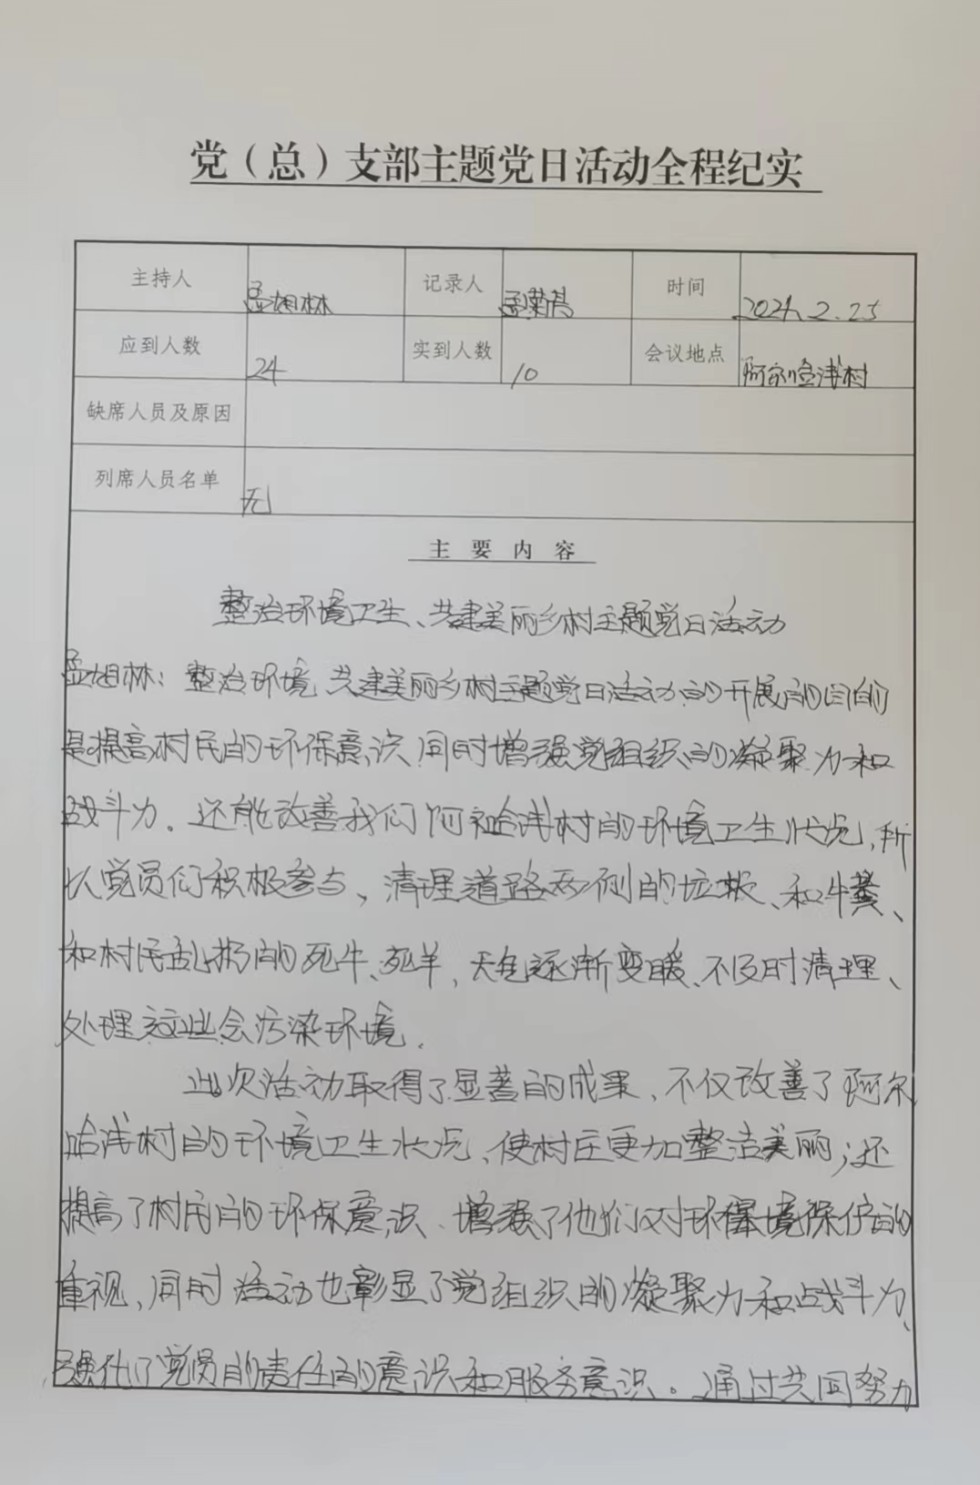 党（总）支部主题党日活动全程纪实
主持人 孟旭林 记录人 孟菊 时间 2024.2.25
应到人数 24 实到人数 10 会议地点 阿尔哈浅村
缺席人员及原因
列席人员名单 无
主要内容
整治环境卫生、共建美丽乡村主题党日活动
孟旭林：整治环境 共建美丽乡村主题党日活动的开展的目的
是提高村民的环保意识 同时增强党组织的凝聚力和
战斗力。还能改善我们阿尔哈浅村的环境卫生状况，所
以党员们积极参与、清理道路两侧的垃圾、和牛粪、
和村民乱扔的死牛、死羊，天气逐渐变暖、不及时清理、
处理这些会污染环境。
此次活动取得了显著的成果、不仅改善了阿尔
哈浅村的环境卫生状况、使村庄更加整洁美丽；还
提高了村民的环保意识、增强了他们对环境保护的
重视、同时活动也彰显了党组织的凝聚力和战斗力、
强化了党员的责任的意识和服务意识。通过共同努力